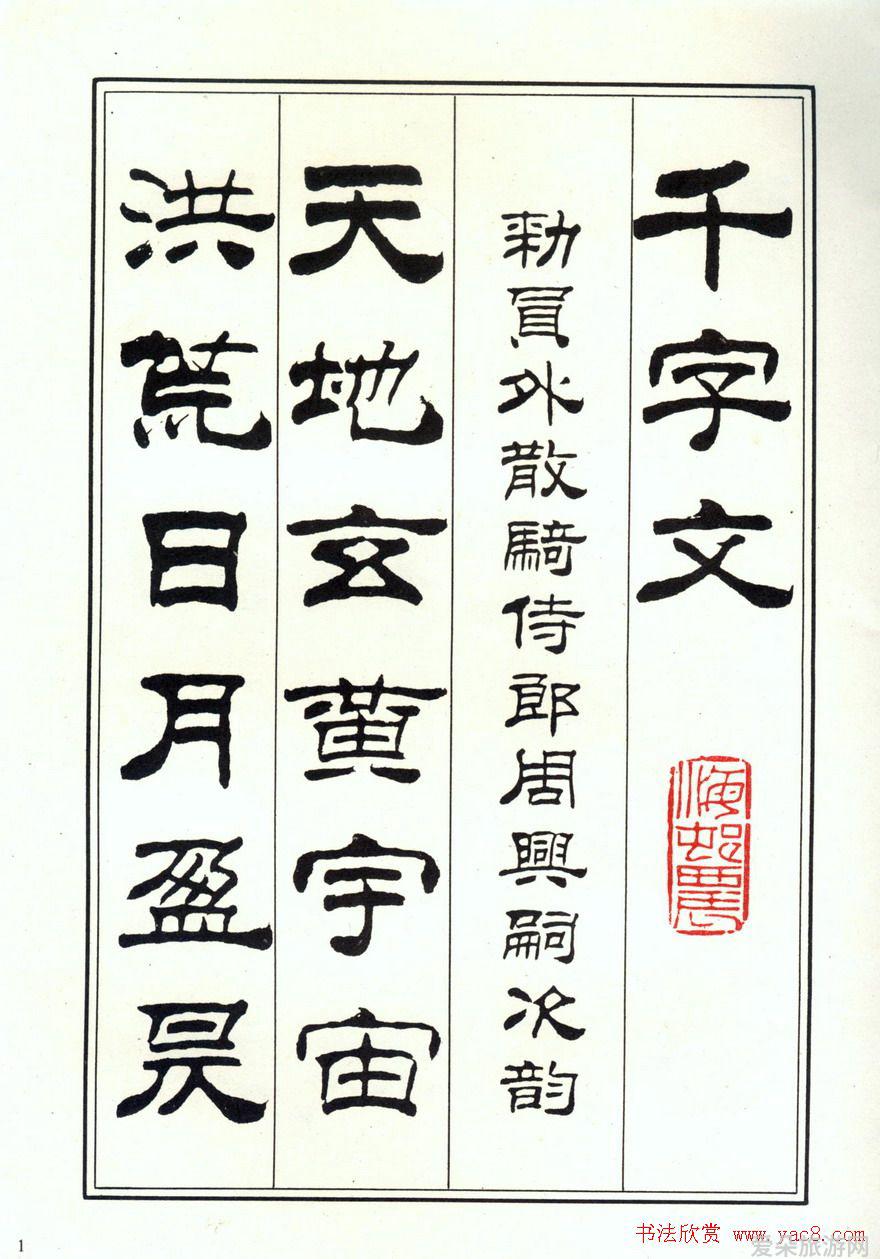 千字文
勑員外散騎侍郎周興嗣次韵
天地玄黃宇宙
洪荒日月盈昃
1
书法欣赏 www.yac8.com
爱朵旅游网